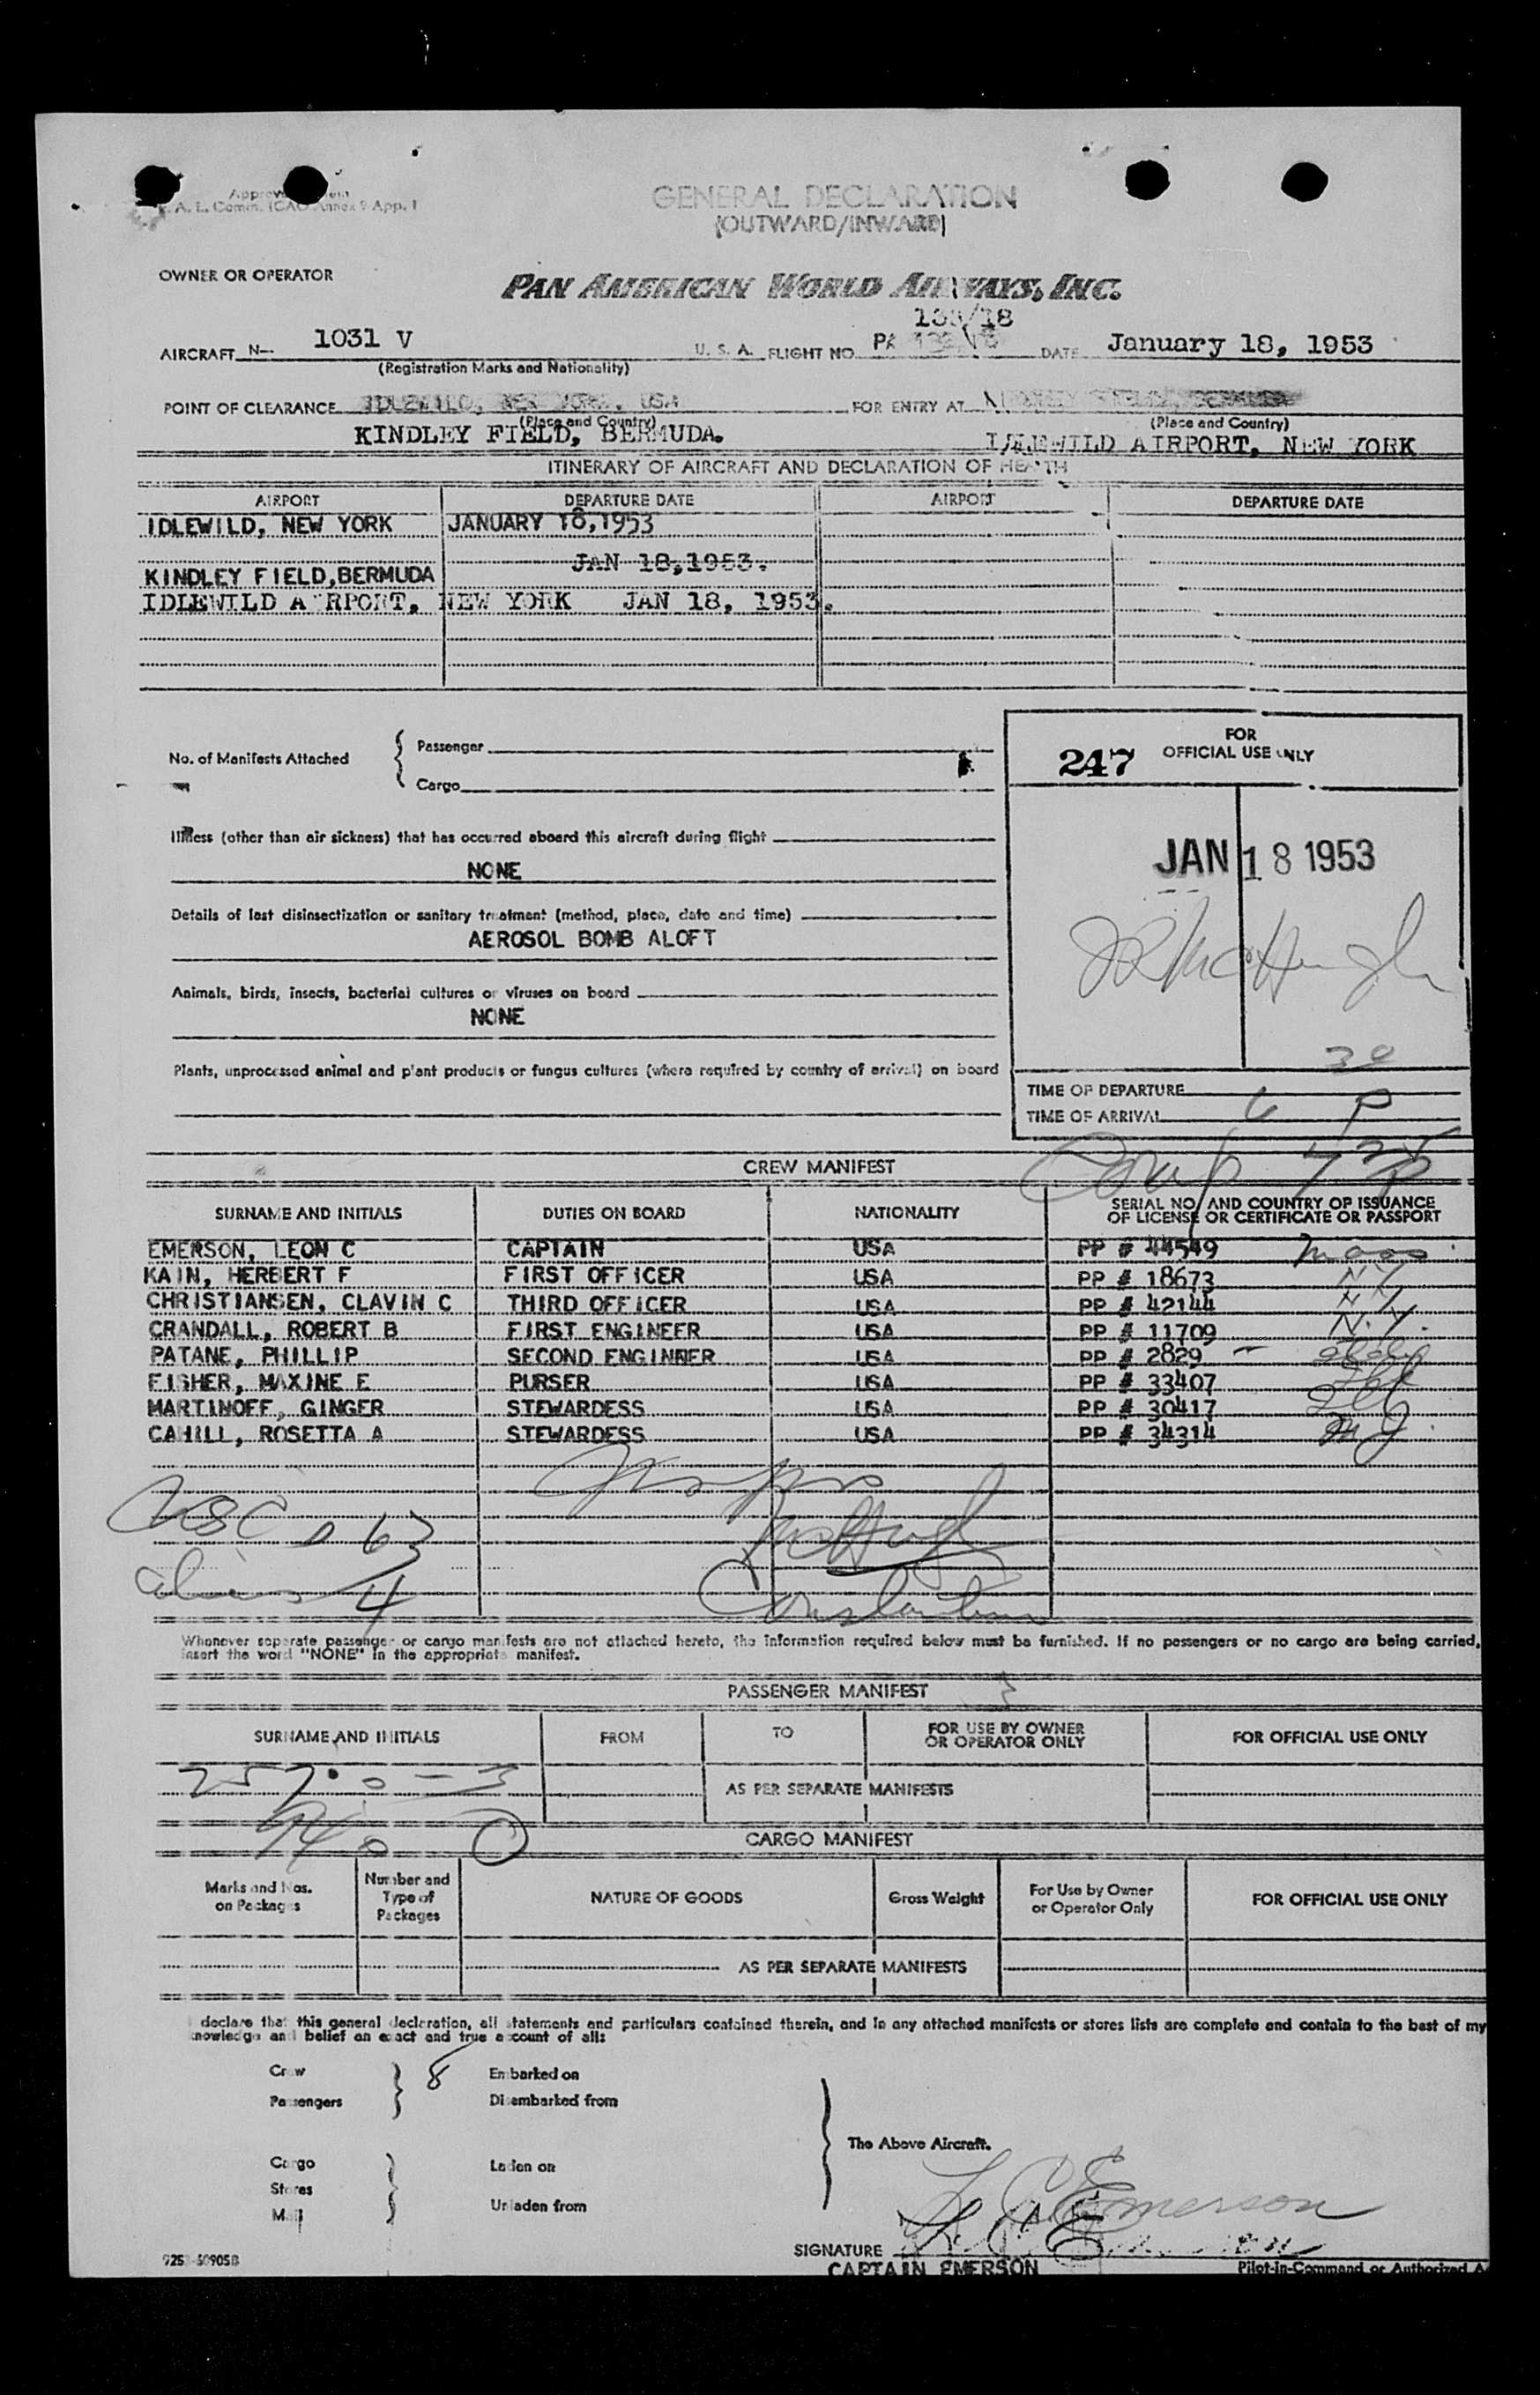 GENERAL DECLARATION
A. L. Comm. ICAO Annex 9 App. 1
(OUTWARD/INWARD)
OWNER OR OPERATOR
PAN AMERICAN WORLD AIRWAYS, INC.
AIRCRAFT N- 1031 V U. S. A. FLIGHT NO. PA DATE January 18, 1953
(Registration Marks and Nationality)
POINT OF CLEARANCE IDLEWILD, NEW YORK, USA FOR ENTRY AT
(Place and Country) (Place and Country)
KINDLEY FIELD, BERMUDA. IDLEWILD AIRPORT, NEW YORK
ITINERARY OF AIRCRAFT AND DECLARATION OF HEALTH
AIRPORT DEPARTURE DATE AIRPORT DEPARTURE DATE
IDLEWILD, NEW YORK JANUARY 18,1953
JAN 18,1953.
KINDLEY FIELD,BERMUDA
IDLEWILD AIRPORT, NEW YORK JAN 18, 1953.
No. of Manifests Attached
Passenger
Cargo
FOR
OFFICIAL USE ONLY
247
JAN 18 1953
Illness (other than air sickness) that has occurred aboard this aircraft during flight
NONE
Details of last disinsectization or sanitary treatment (method, place, date and time)
AEROSOL BOMB ALOFT
JRMcHugh
Animals, birds, insects, bacterial cultures or viruses on board
NONE
Plants, unprocessed animal and plant products or fungus cultures (where required by country of arrival) on board
30
TIME OF DEPARTURE
TIME OF ARRIVAL 6 P
CREW MANIFEST
SURNAME AND INITIALS DUTIES ON BOARD NATIONALITY SERIAL NO. AND COUNTRY OF ISSUANCE
OF LICENSE OR CERTIFICATE OR PASSPORT
EMERSON, LEON C CAPTAIN USA PP # 44549 Mass
KAIN, HERBERT F FIRST OFFICER USA PP # 18673 N Y
CHRISTIANSEN, CLAVIN C THIRD OFFICER USA PP # 42144 N Y
CRANDALL, ROBERT B FIRST ENGINEER USA PP # 11709 N.Y.
PATANE, PHILLIP SECOND ENGINEER USA PP # 2829
FISHER, MAXINE E PURSER USA PP # 33407
MARTINOFF, GINGER STEWARDESS USA PP # 30417
CAHILL, ROSETTA A STEWARDESS USA PP # 34314
USC 63
McHugh
Aliens 4
Constantine
Whenever separate passenger or cargo manifests are not attached hereto, the information required below must be furnished. If no passengers or no cargo are being carried,
insert the word "NONE" in the appropriate manifest.
PASSENGER MANIFEST
SURNAME AND INITIALS FROM TO FOR USE BY OWNER
OR OPERATOR ONLY FOR OFFICIAL USE ONLY
AS PER SEPARATE MANIFESTS
CARGO MANIFEST
Marks and Nos.
on Packages
Number and
Type of
Packages
NATURE OF GOODS
Gross Weight
For Use by Owner
or Operator Only
FOR OFFICIAL USE ONLY
AS PER SEPARATE MANIFESTS
declare that this general declaration, all statements and particulars contained therein, and in any attached manifests or stores lists are complete and contain to the best of my
knowledge and belief an exact and true account of all:
Crew 8 Embarked on
Passengers Disembarked from
The Above Aircraft.
Cargo Laden on
Stores
Mail Unladen from
L C Emerson
SIGNATURE L C Emerson
CAPTAIN EMERSON Pilot-in-Command or Authorized A